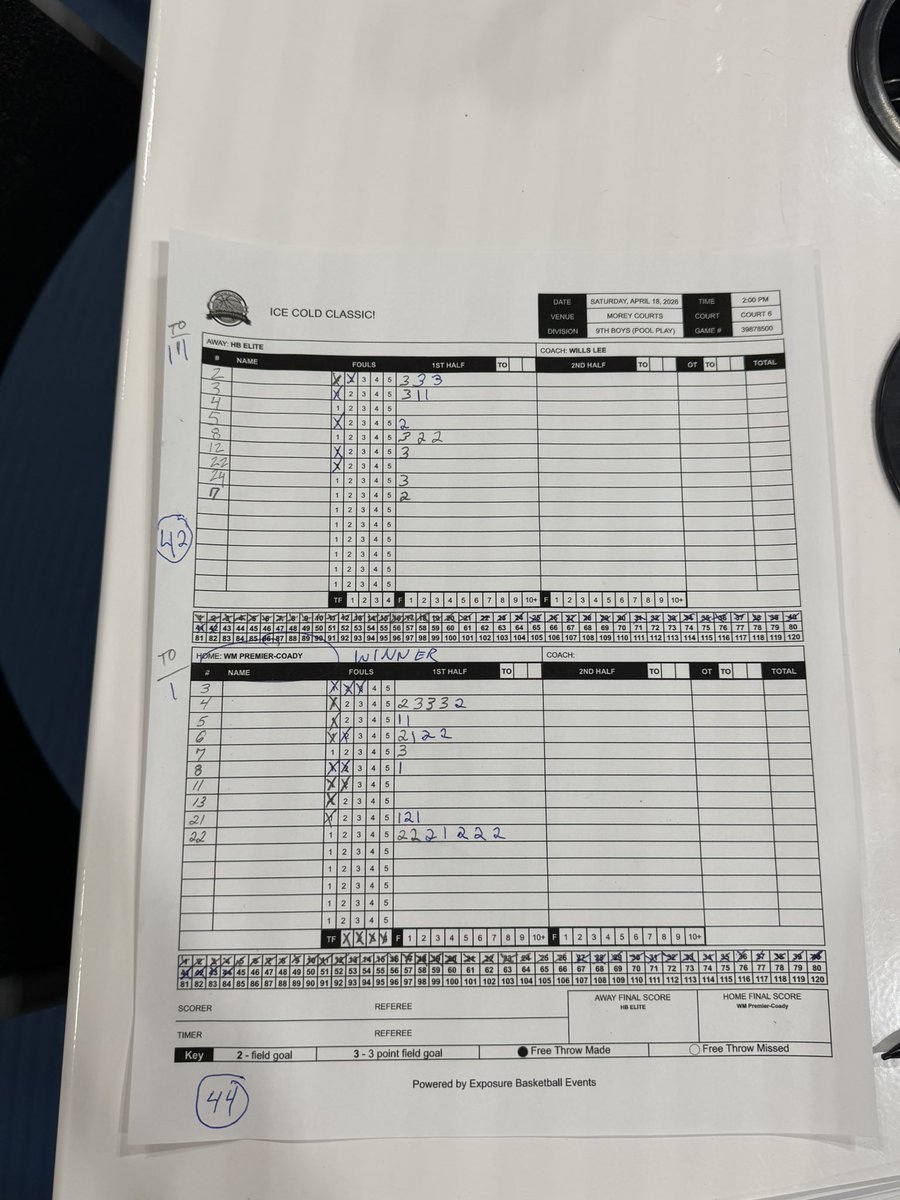 ICE COLD CLASSIC!
DATE SATURDAY, APRIL 18, 2026 TIME 2:00 PM
VENUE MOREY COURTS COURT COURT 6
DIVISION 9TH BOYS (POOL PLAY) GAME # 39878500
TO
AWAY: HB ELITE COACH: WILLS LEE
# NAME FOULS 1ST HALF TO 2ND HALF TO OT TO TOTAL
2 3 4 5 3 3 3
3 2 3 4 5 3 1 1
4 1 2 3 4 5
5 2 3 4 5 2
8 1 2 3 4 5 3 2 2
12 2 3 4 5 3
22 2 3 4 5
24 1 2 3 4 5 3
7 1 2 3 4 5 2
1 2 3 4 5
1 2 3 4 5
42 1 2 3 4 5
1 2 3 4 5
1 2 3 4 5
1 2 3 4 5
TF 1 2 3 4 F 1 2 3 4 5 6 7 8 9 10+ F 1 2 3 4 5 6 7 8 9 10+
1 2 3 4 5 6 7 8 9 10 11 12 13 14 15 16 17 18 19 20 21 22 23 24 25 26 27 28 29 30 31 32 33 34 35 36 37 38 39 40
41 42 43 44 45 46 47 48 49 50 51 52 53 54 55 56 57 58 59 60 61 62 63 64 65 66 67 68 69 70 71 72 73 74 75 76 77 78 79 80
81 82 83 84 85 86 87 88 89 90 91 92 93 94 95 96 97 98 99 100 101 102 103 104 105 106 107 108 109 110 111 112 113 114 115 116 117 118 119 120
TO
1
HOME: WM PREMIER-COADY WINNER COACH:
# NAME FOULS 1ST HALF TO 2ND HALF TO OT TO TOTAL
3 4 5
4 2 3 4 5 2 3 3 3 2
5 2 3 4 5 1 1
6 3 4 5 2 1 2 2
7 1 2 3 4 5 3
8 3 4 5 1
11 3 4 5
13 2 3 4 5
21 2 3 4 5 1 2 1
22 1 2 3 4 5 2 2 2 1 2 2 2
1 2 3 4 5
1 2 3 4 5
1 2 3 4 5
1 2 3 4 5
1 2 3 4 5
TF F 1 2 3 4 5 6 7 8 9 10+ F 1 2 3 4 5 6 7 8 9 10+
1 2 3 4 5 6 7 8 9 10 11 12 13 14 15 16 17 18 19 20 21 22 23 24 25 26 27 28 29 30 31 32 33 34 35 36 37 38 39 40
41 42 43 44 45 46 47 48 49 50 51 52 53 54 55 56 57 58 59 60 61 62 63 64 65 66 67 68 69 70 71 72 73 74 75 76 77 78 79 80
81 82 83 84 85 86 87 88 89 90 91 92 93 94 95 96 97 98 99 100 101 102 103 104 105 106 107 108 109 110 111 112 113 114 115 116 117 118 119 120
SCORER REFEREE AWAY FINAL SCORE HOME FINAL SCORE
HB ELITE WM Premier-Coady
TIMER REFEREE
Key 2 - field goal 3 - 3 point field goal Free Throw Made Free Throw Missed
Powered by Exposure Basketball Events
44